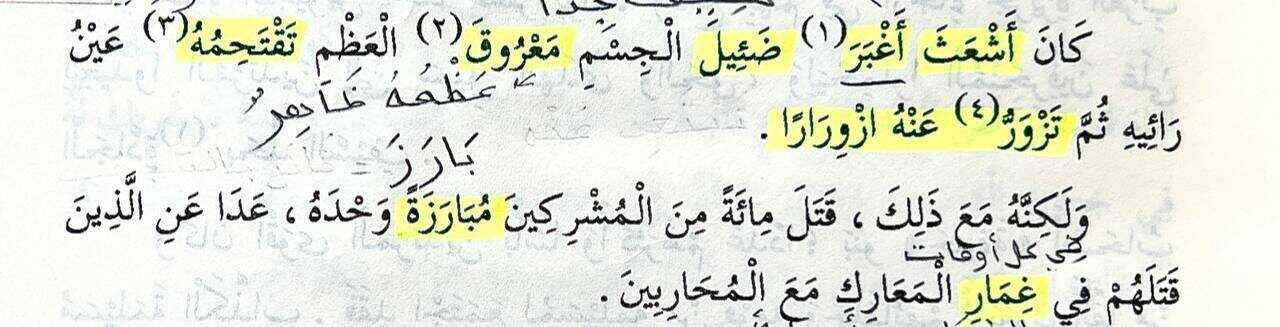 كَانَ أَشْعَثَ أَغْبَرَ(١) ضَئِيلَ الْجِسْمِ مَعْرُوقَ(٢) الْعَظْمِ تَقْتَحِمُهُ(٣) عَيْنُ
عَظْمُهُ ظَاهِرٌ
رَائِيهِ ثُمَّ تَزْوَرُّ(٤) عَنْهُ ازْوِرَارًا .
بَارَزَ
وَلَكِنَّهُ مَعَ ذَلِكَ ، قَتَلَ مِائَةً مِنَ الْمُشْرِكِينَ مُبَارَزَةً وَحْدَهُ ، عَدَا عَنِ الَّذِينَ
في كل أوقات
قَتَلَهُمْ فِي غِمَارِ الْمَعَارِكِ مَعَ الْمُحَارِبِينَ .